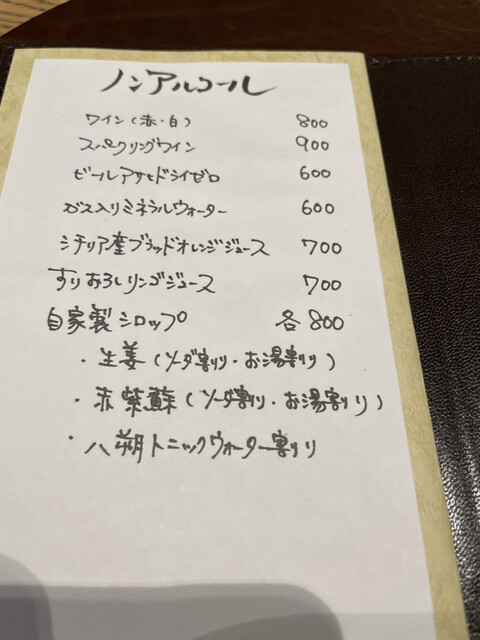 ノンアルコール
ワイン(赤・白) 800
スパークリングワイン 900
ビールアサヒドライゼロ 600
ガス入りミネラルウォーター 600
シチリア産ブラッドオレンジジュース 700
すりおろしリンゴジュース 700
自家製シロップ 各800
・生姜(ソーダ割り・お湯割り)
・赤紫蘇(ソーダ割り・お湯割り)
・八朔トニックウォーター割り